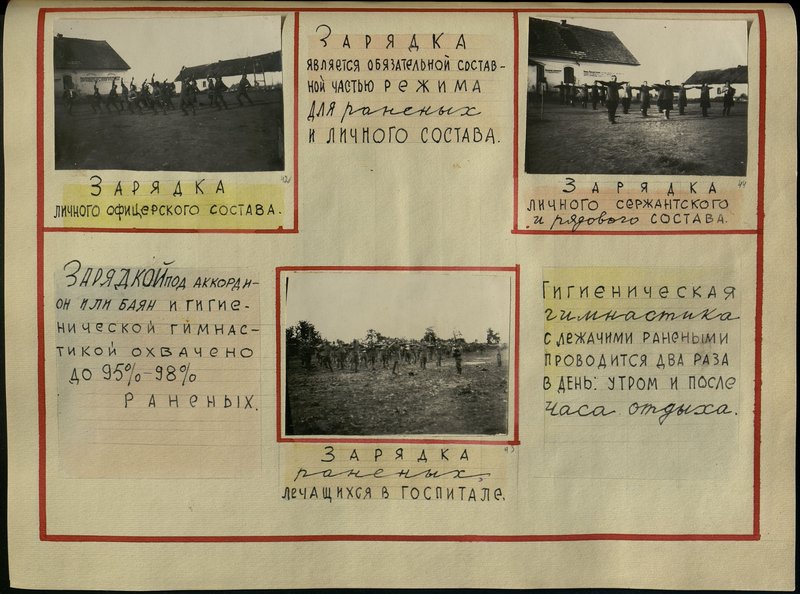 ЗАРЯДКА
ЛИЧНОГО ОФИЦЕРСКОГО СОСТАВА.
42
ЗАРЯДКА
ЯВЛЯЕТСЯ ОБЯЗАТЕЛЬНОЙ СОСТАВ-
НОЙ ЧАСТЬЮ РЕЖИМА
ДЛЯ раненых
И ЛИЧНОГО СОСТАВА.
ЗАРЯДКА
ЛИЧНОГО СЕРЖАНТСКОГО
и рядового СОСТАВА.
44
ЗАРЯДКОЙ ПОД АККОРДИ-
ОН ИЛИ БАЯН И ГИГИЕ-
НИЧЕСКОЙ ГИМНАС-
ТИКОЙ ОХВАЧЕНО
ДО 95%-98%
РАНЕНЫХ.
ЗАРЯДКА
раненых,
ЛЕЧАЩИХСЯ В ГОСПИТАЛЕ.
43
ГИГИЕНИЧЕСКАЯ
гимнастика
С ЛЕЖАЧИМИ РАНЕНЫМИ
ПРОВОДИТСЯ ДВА РАЗА
В ДЕНЬ: УТРОМ И ПОСЛЕ
часа отдыха.